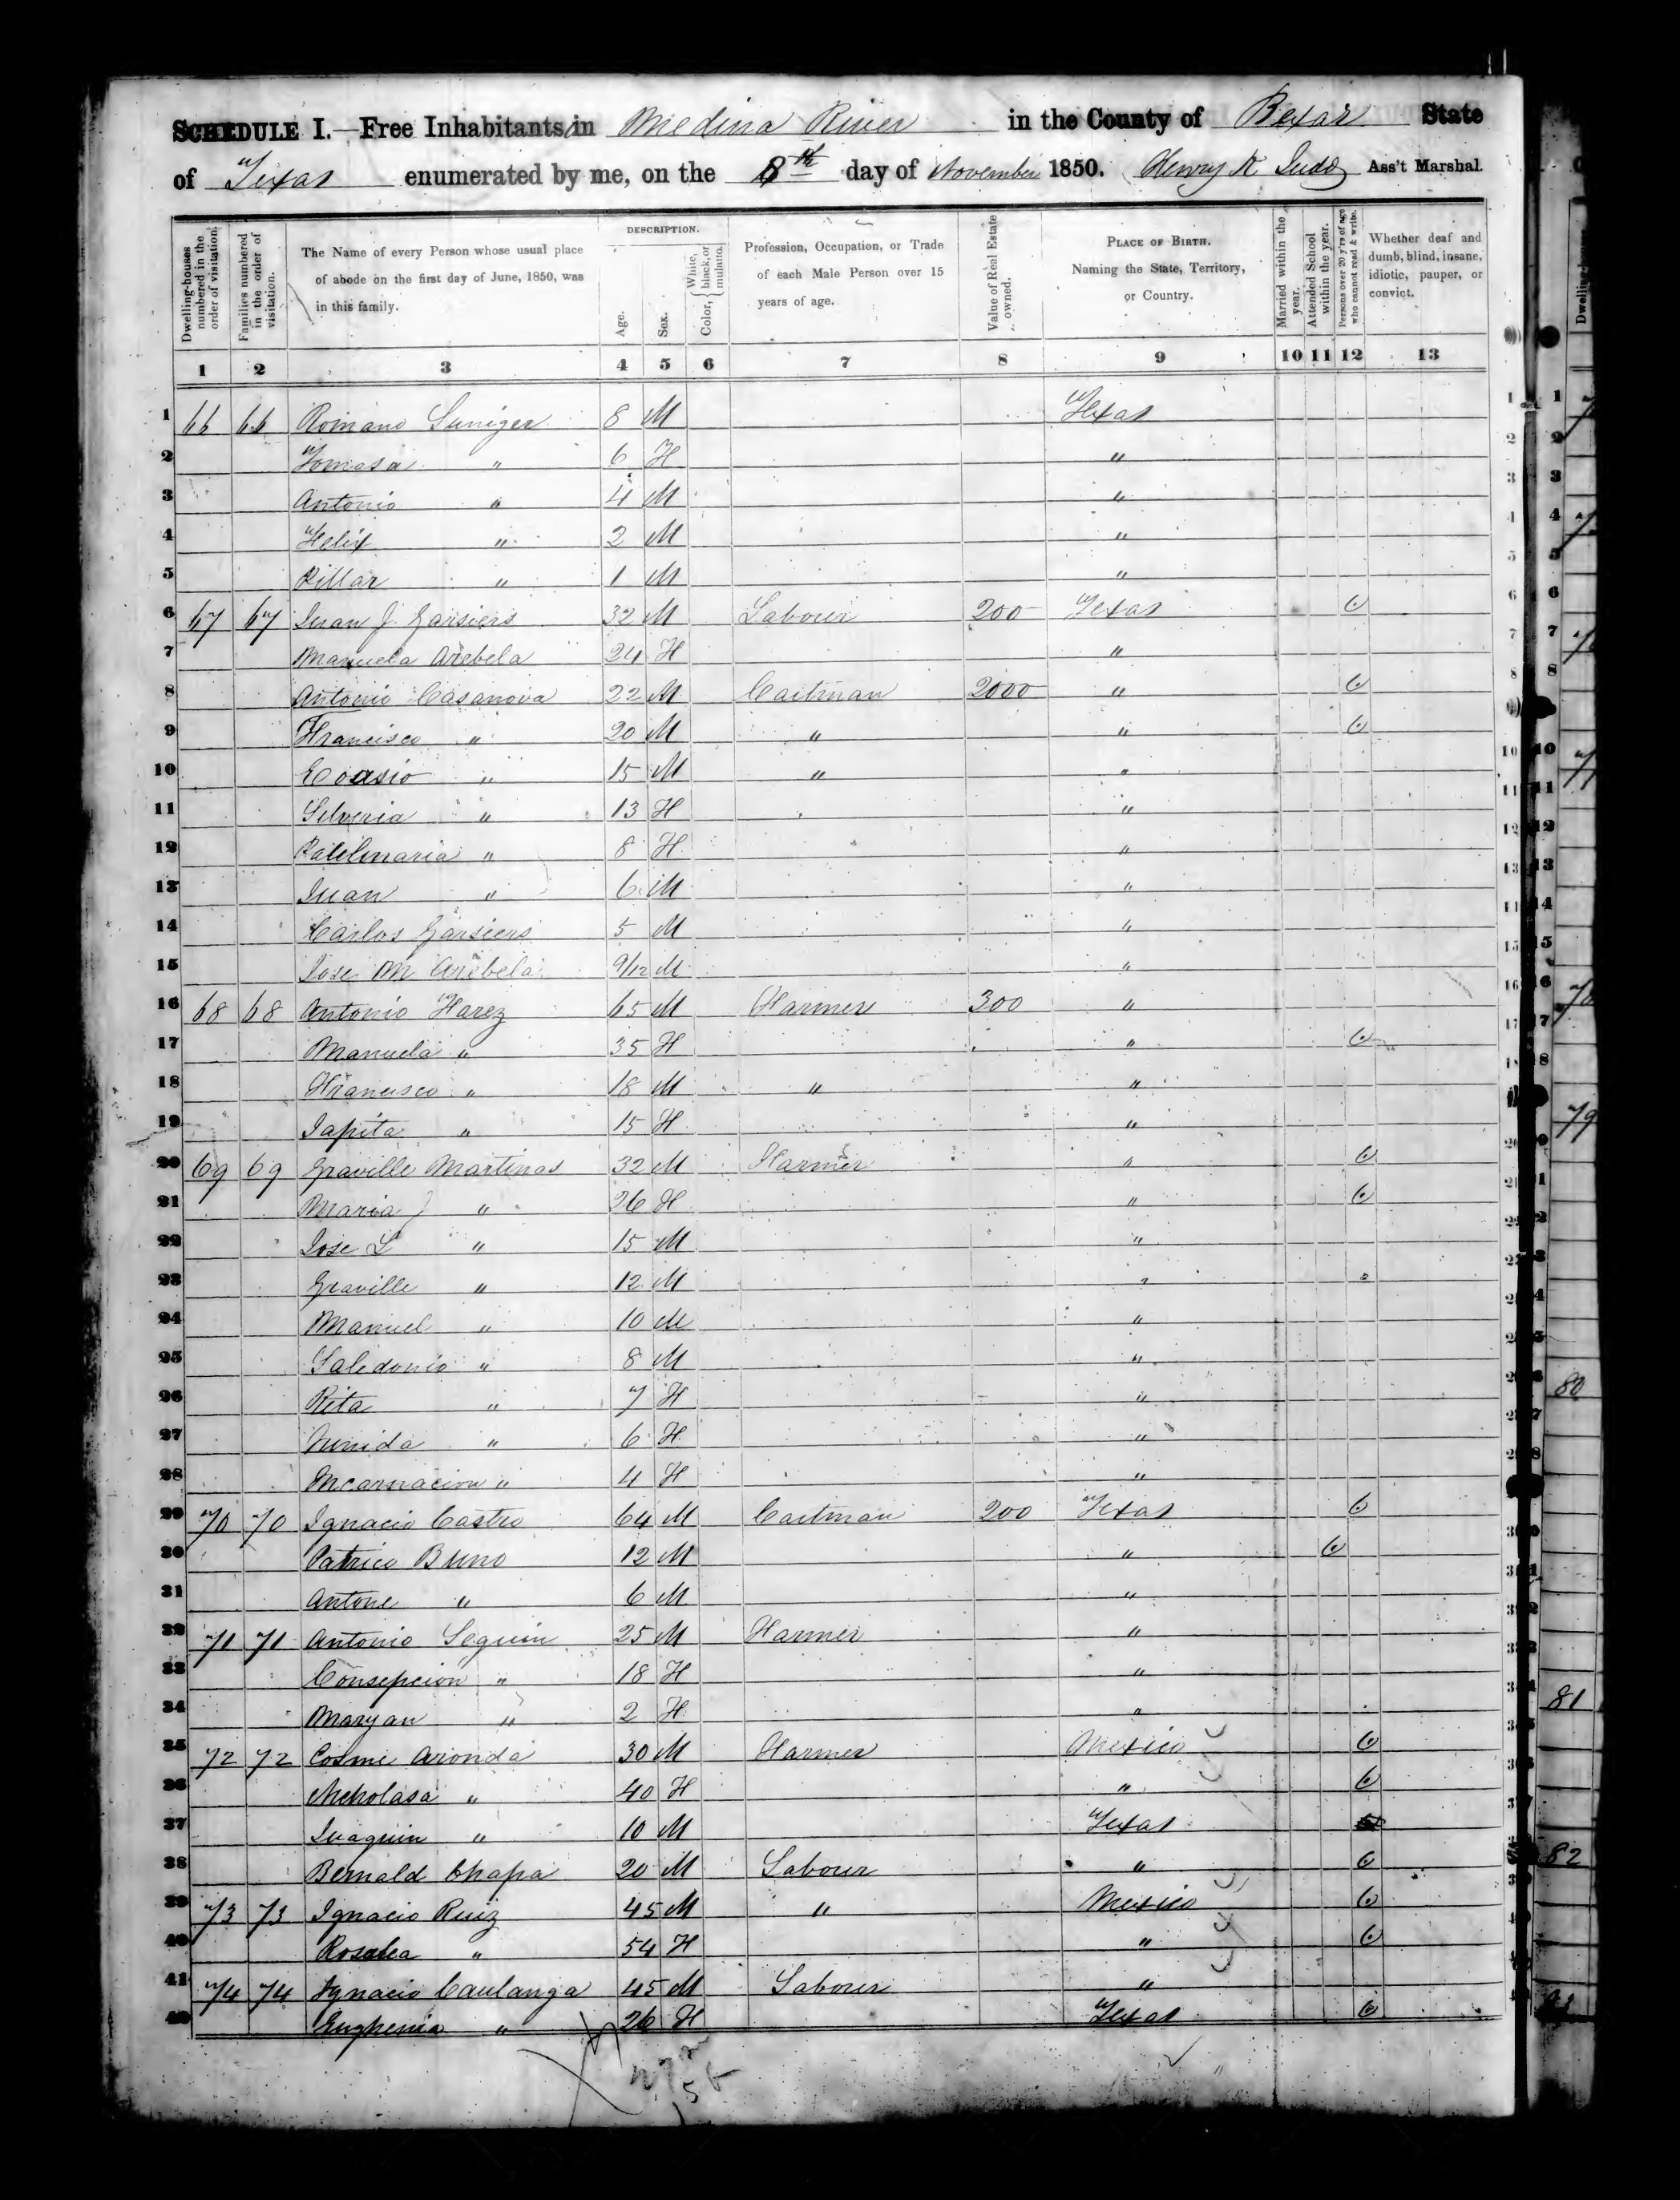 SCHEDULE I.—Free Inhabitants in Medina River in the County of Bexar State
of Texas enumerated by me, on the 8th day of November 1850. Henry K Judd Ass't Marshal.
Dwelling-houses numbered in the order of visitation.
Families numbered in the order of visitation.
The Name of every Person whose usual place of abode on the first day of June, 1850, was in this family.
DESCRIPTION.
Age.
Sex.
Color, White, black, or mulatto.
Profession, Occupation, or Trade of each Male Person over 15 years of age.
Value of Real Estate owned.
PLACE OF BIRTH. Naming the State, Territory, or Country.
Married within the year.
Attended School within the year.
Persons over 20 y'rs of age who cannot read & write.
Whether deaf and dumb, blind, insane, idiotic, pauper, or convict.
1 2 3 4 5 6 7 8 9 10 11 12 13
1 66 66 Romano Suniger 8 M Texas
2 Tomasa " 6 F "
3 Antonio " 4 M "
4 Felix " 2 M "
5 Pillar " 1 M "
6 67 67 Juan J. Garsiers 32 M Labour 200 Texas
7 Manuela Arebela 24 F "
8 Antonio Casanova 22 M Cartman 2000 "
9 Francisco " 20 M " "
10 " 15 M " "
11 Selveria " 13 F "
12 " 8 F "
13 Juan " 6 M "
14 Carlos Garsiers 5 M "
15 Jose M Arebela 9/12 M "
16 68 68 Antonio Farez 65 M Farmer 300 "
17 Manuela " 35 F "
18 Francisco " 18 M " "
19 Japita " 15 F "
20 69 69 Graville Martinas 32 M Farmer "
21 Maria J " 26 F "
22 Jose L " 15 M "
23 Graville " 12 M "
24 Manuel " 10 M "
25 Saledonio " 8 M "
26 Rita " 7 F "
27 " 6 F "
28 Incarnacion " 4 F "
29 70 70 Ignacio Castro 64 M Cartman 200 Texas
30 Patrico Buno 12 M "
31 Antone " 6 M "
32 71 71 Antonio Seguin 25 M Farmer "
33 Consepcion " 18 F "
34 Maryan " 2 F "
35 72 72 Cosmi Aronda 30 M Farmer Mexico
36 Nicholasa " 40 F "
37 Juaquin " 10 M Texas
38 Bernald Chapa 20 M Labour "
39 73 73 Ignacio Ruiz 45 M " Mexico
40 Rosalea " 54 F "
41 74 74 Ignacio Caulanga 45 M Labour "
42 Eughenia " 26 F Texas